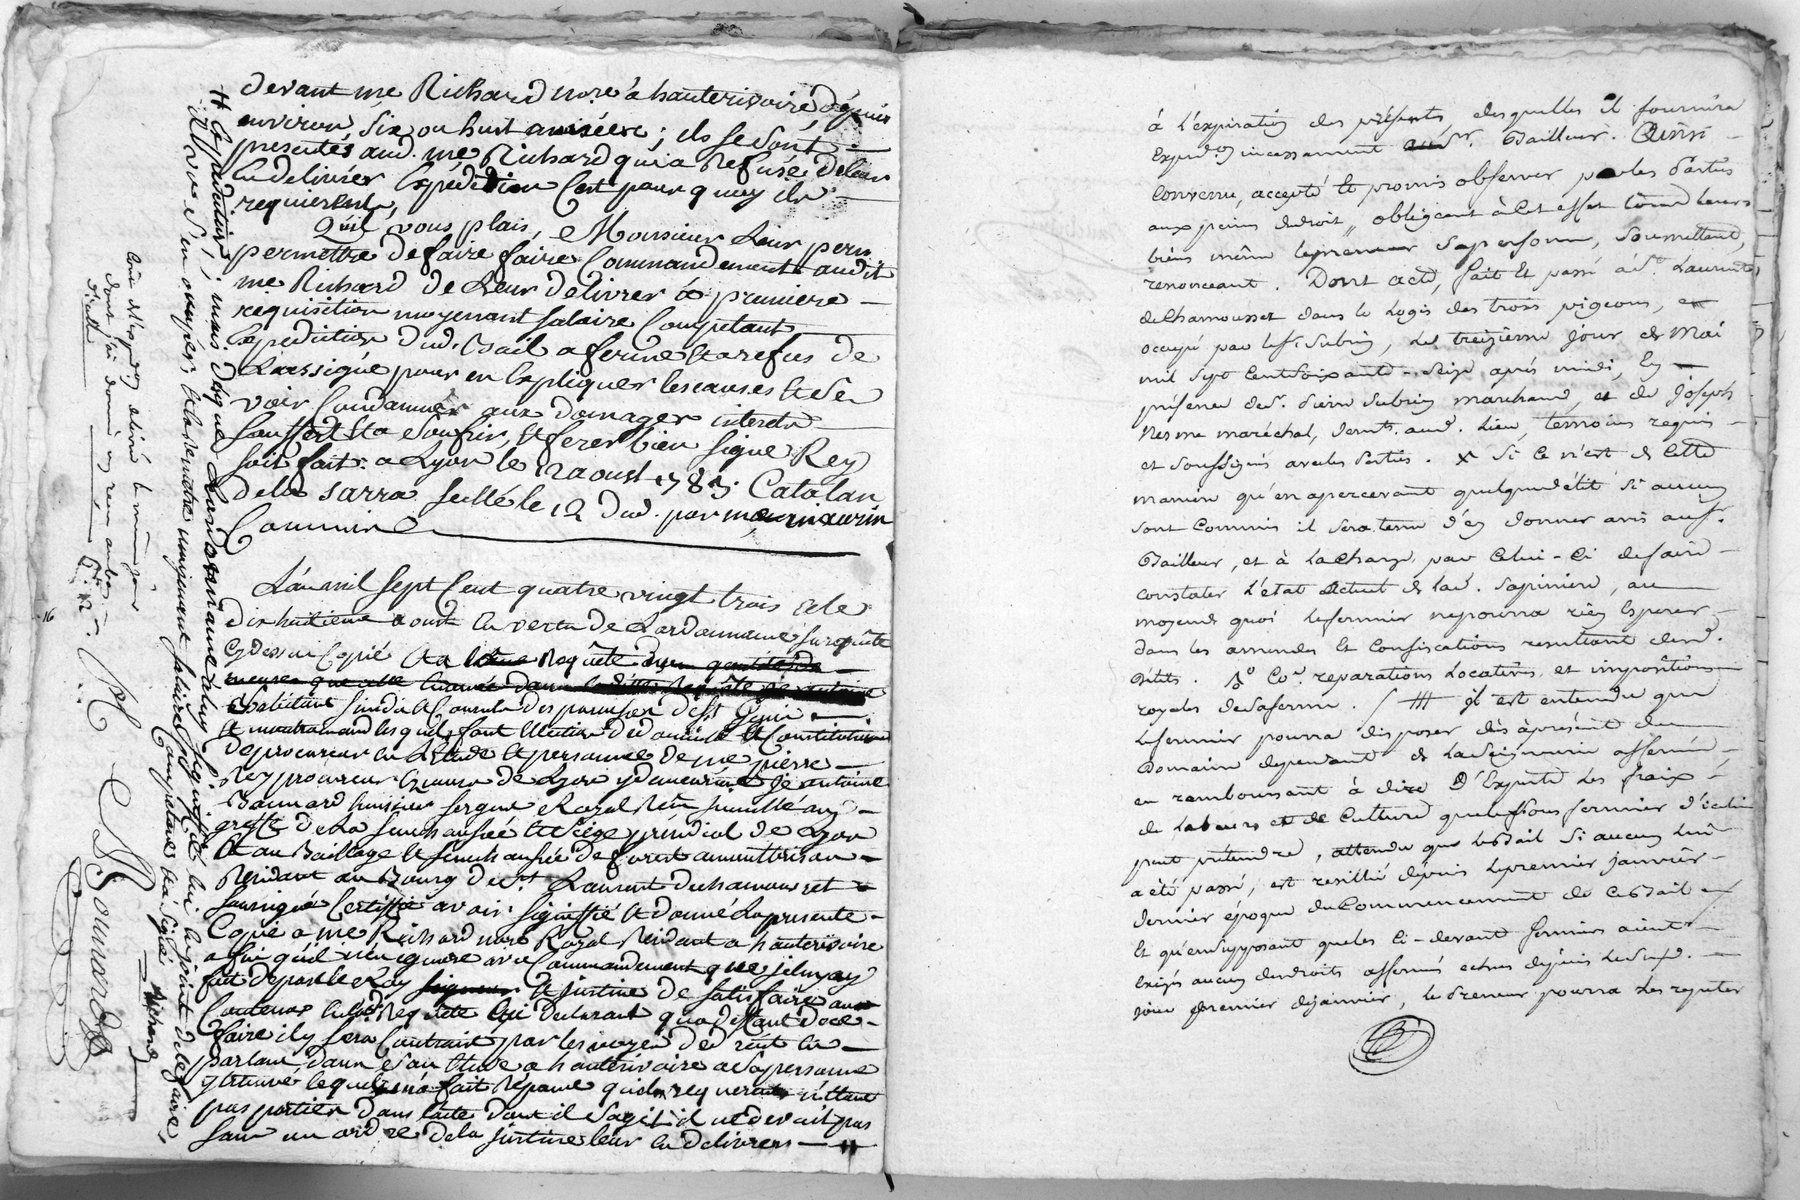 devant me Richard nore a hauterivoire, depuis
environ, six ou huit années; ils se sont
presentés aud. me Richard qui a Refusé de leur
En delivrer Expédition C'est pourquoy ils
requierent,
Qu'il vous plais, Monsieur Leur
permettre de faire faire Commandement audit
me Richard de Leur delivrer a premiere
requisition moyenant salaire Competant
Expedition dud. Bail a ferme Et a refus de
L'assigné pour en Expliquer les causes Et se
voir Condamner aux domages interets
soufferts Et a soufrir, Et ferez bien signé Rey
soit fait: a Lyon le 12 aoust 1783. Catalan
dela sarra scellé le 12 dud. par
Commis
L'an mil sept Cent quatre vingt trois Et le
dix huitieme aoust En vertu de L'ordonnance sur requête
Cy dessus Copié Et a Requête
habitans sindic Et Consuls des paroisses de St Genis
Et montromand lesquels font Election de domicile Et Constitution
de procureur En L'Etude Et personne de me pierre
Rey procureur Es cours de Lyon y demeurant Je antoine
Bonnard huissier sergent Royal
greffe de La senechaussée Et siege presidial de Lyon
Et au Baillage Et senechaussée de forest a montbrison
Résidant au Bourg de St Laurent de chamousset
soussigné Certiffie avoir signiffié Et donné La presente
Copie a me Richard nore Royal Résidant a hauterivoire
afin qu'il n'en ignore avec Commandement que je luy ay
fait de par le Roy Et justice de satisfaire au
Contenu En lad. Requete Luy declarant qua deffaut de ce
faire il y sera Contraint par les voyes de droit En
parlant dans son Etude a hauterivoire a sa personne
y trouvé lequel m'a fait réponse que les requerants n'étant
pas parties dans l'acte dont il s'agit il ne devait pas
sans un ordre de la justice leur En delivrer
# Expedition; mais d'apres L'ordonnance a luy signiffiée lui Enjoint de le faire,
il va s'en occuper, Et la remettre moyenant salaire Competant Et a signé Richard
dont j'ai donné
Bonnard
16
à L'expiration des présents desquelles il fournira
Expedon. incessament aud. Sr. Bailleur. Ainsi
Convenu, accepté Et promis observer par les Parties
aux peines de droit, obligeant à Cet effet tous Leurs
biens même le preneur sa personne, soumettant,
renonceant. Dont acte, fait Et passé à St. Laurent
de Chamousset dans le Logis des trois pigeons,
occupé par le Sr Subrin, Le treizieme jour de Mai
mil sept Cent Soixante-seize après midi, En
présence de Sr. Pierre Subrin marchand, et de Joseph
Nesme maréchal, demts. aud. Lieu, temoins requis
et soussignés avec les Parties. x Si Ce n'est de Cette
maniere qu'en apercevant quelques délit si aucuns
sont Commis il sera tenu d'en donner avis aud. Sr.
Bailleur, et à la Charge par Celui-Ci de faire
constater L'état actuel de Lad. sapiniere, au
moyend quoi le fermier ne pourra rien Esperer
dans les amendes Et Confiscations resultant desd.
délits. reparations Locatives et impositions
royales de sa ferme. / # il est entendu que
le fermier pourra disposer dès àprésent du
Domaine dependant de La Seigneurie affermé
en remboursant à dire D'Experts Les fraix
de Labours et de Culture que le sous fermier d'icelui
peut prétendre, attendu que le Bail si aucun lui
a été passé, est resillié depuis le premier janvier
dernier époque du Commencement de Ce Bail
Et qu'en supposant que les Ci-devant fermiers aient
exigés aucuns des droits affermés echus depuis Led.
jour premier de janvier, le Preneur pourra Les repeter